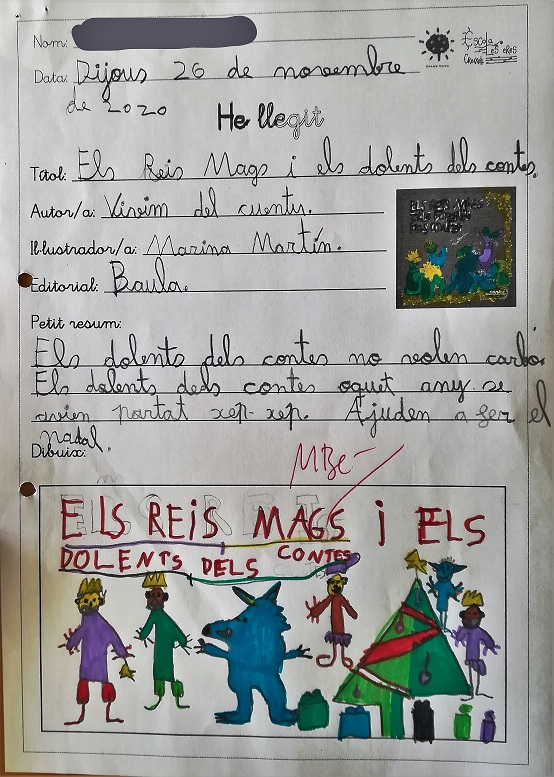 Nom:
Data: Dijous 26 de novembre
de 2020
Escola
Les Eres
He llegit
Títol: Els Reis Mags i els dolents dels contes.
Autor/a: Vivim del cuentu.
Il·lustrador/a: Marina Martín.
Editorial: Baula.
ELS REIS MAGS
I ELS DOLENTS
DELS CONTES
Petit resum:
Els dolents dels contes no volen carbó.
Els dolents dels contes aquet any se
avien portat xep-xep. Ajuden a fer el
nadal.
Dibuix:
MBe-
ELS REIS MAGS i ELS
DOLENTS DELS CONTES